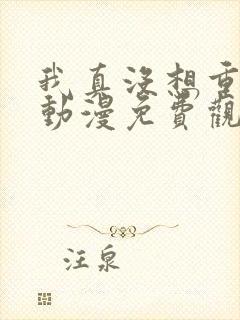 我真没想重
動漫免費觀
汪泉